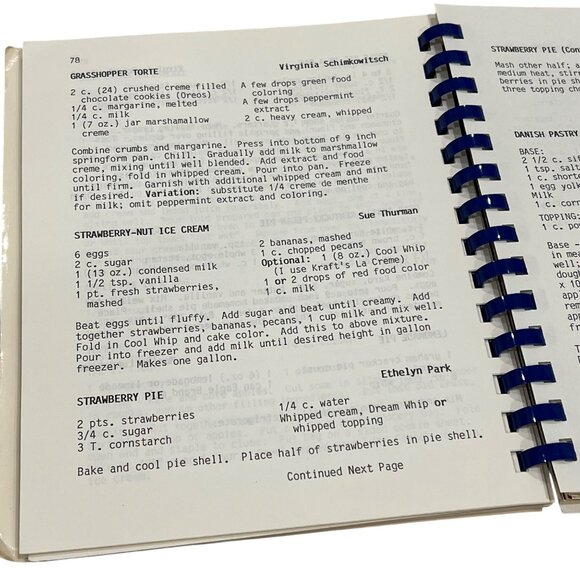 78
GRASSHOPPER TORTE
Virginia Schimkowitsch
2 c. (24) crushed creme filled
chocolate cookies (Oreos)
1/4 c. margarine, melted
1/4 c. milk
1 (7 oz.) jar marshamallow
creme
A few drops green food
coloring
A few drops peppermint
extract
2 c. heavy cream, whipped
Combine crumbs and margarine. Press into bottom of 9 inch
springform pan. Chill. Gradually add milk to marshmallow
creme, mixing until well blended. Add extract and food
coloring, fold in whipped cream. Pour into pan. Freeze
until firm. Garnish with additional whipped cream and mint
if desired. Variation: substitute 1/4 creme de menthe
for milk; omit peppermint extract and coloring.
STRAWBERRY-NUT ICE CREAM
Sue Thurman
6 eggs
2 c. sugar
1 (13 oz.) condensed milk
1 1/2 tsp. vanilla
1 pt. fresh strawberries,
mashed
2 bananas, mashed
1 c. chopped pecans
Optional: 1 (8 oz.) Cool Whip
(I use Kraft's La Creme)
1 or 2 drops of red food color
1 c. milk
Beat eggs until fluffy. Add sugar and beat until creamy. Add
together strawberries, bananas, pecans, 1 cup milk and mix well.
Fold in Cool Whip and cake color. Add this to above mixture.
Pour into freezer and add milk until desired height in gallon
freezer. Makes one gallon.
STRAWBERRY PIE
Ethelyn Park
2 pts. strawberries
3/4 c. sugar
3 T. cornstarch
1/4 c. water
Whipped cream, Dream Whip or
whipped topping
Bake and cool pie shell. Place half of strawberries in pie shell.
Continued Next Page
STRAWBERRY PIE (Con
Mash other half; a
medium heat, stirr
berries in pie she
three topping cho
DANISH PASTRY
BASE:
2 1/2 c. sif
1 tsp. salt
1 c. short
1 egg yol
Milk
1 c. corn
TOPPING:
1 c. po
Base -
in mea
well;
doug
x 10
app
rem
app
fro
unt
T